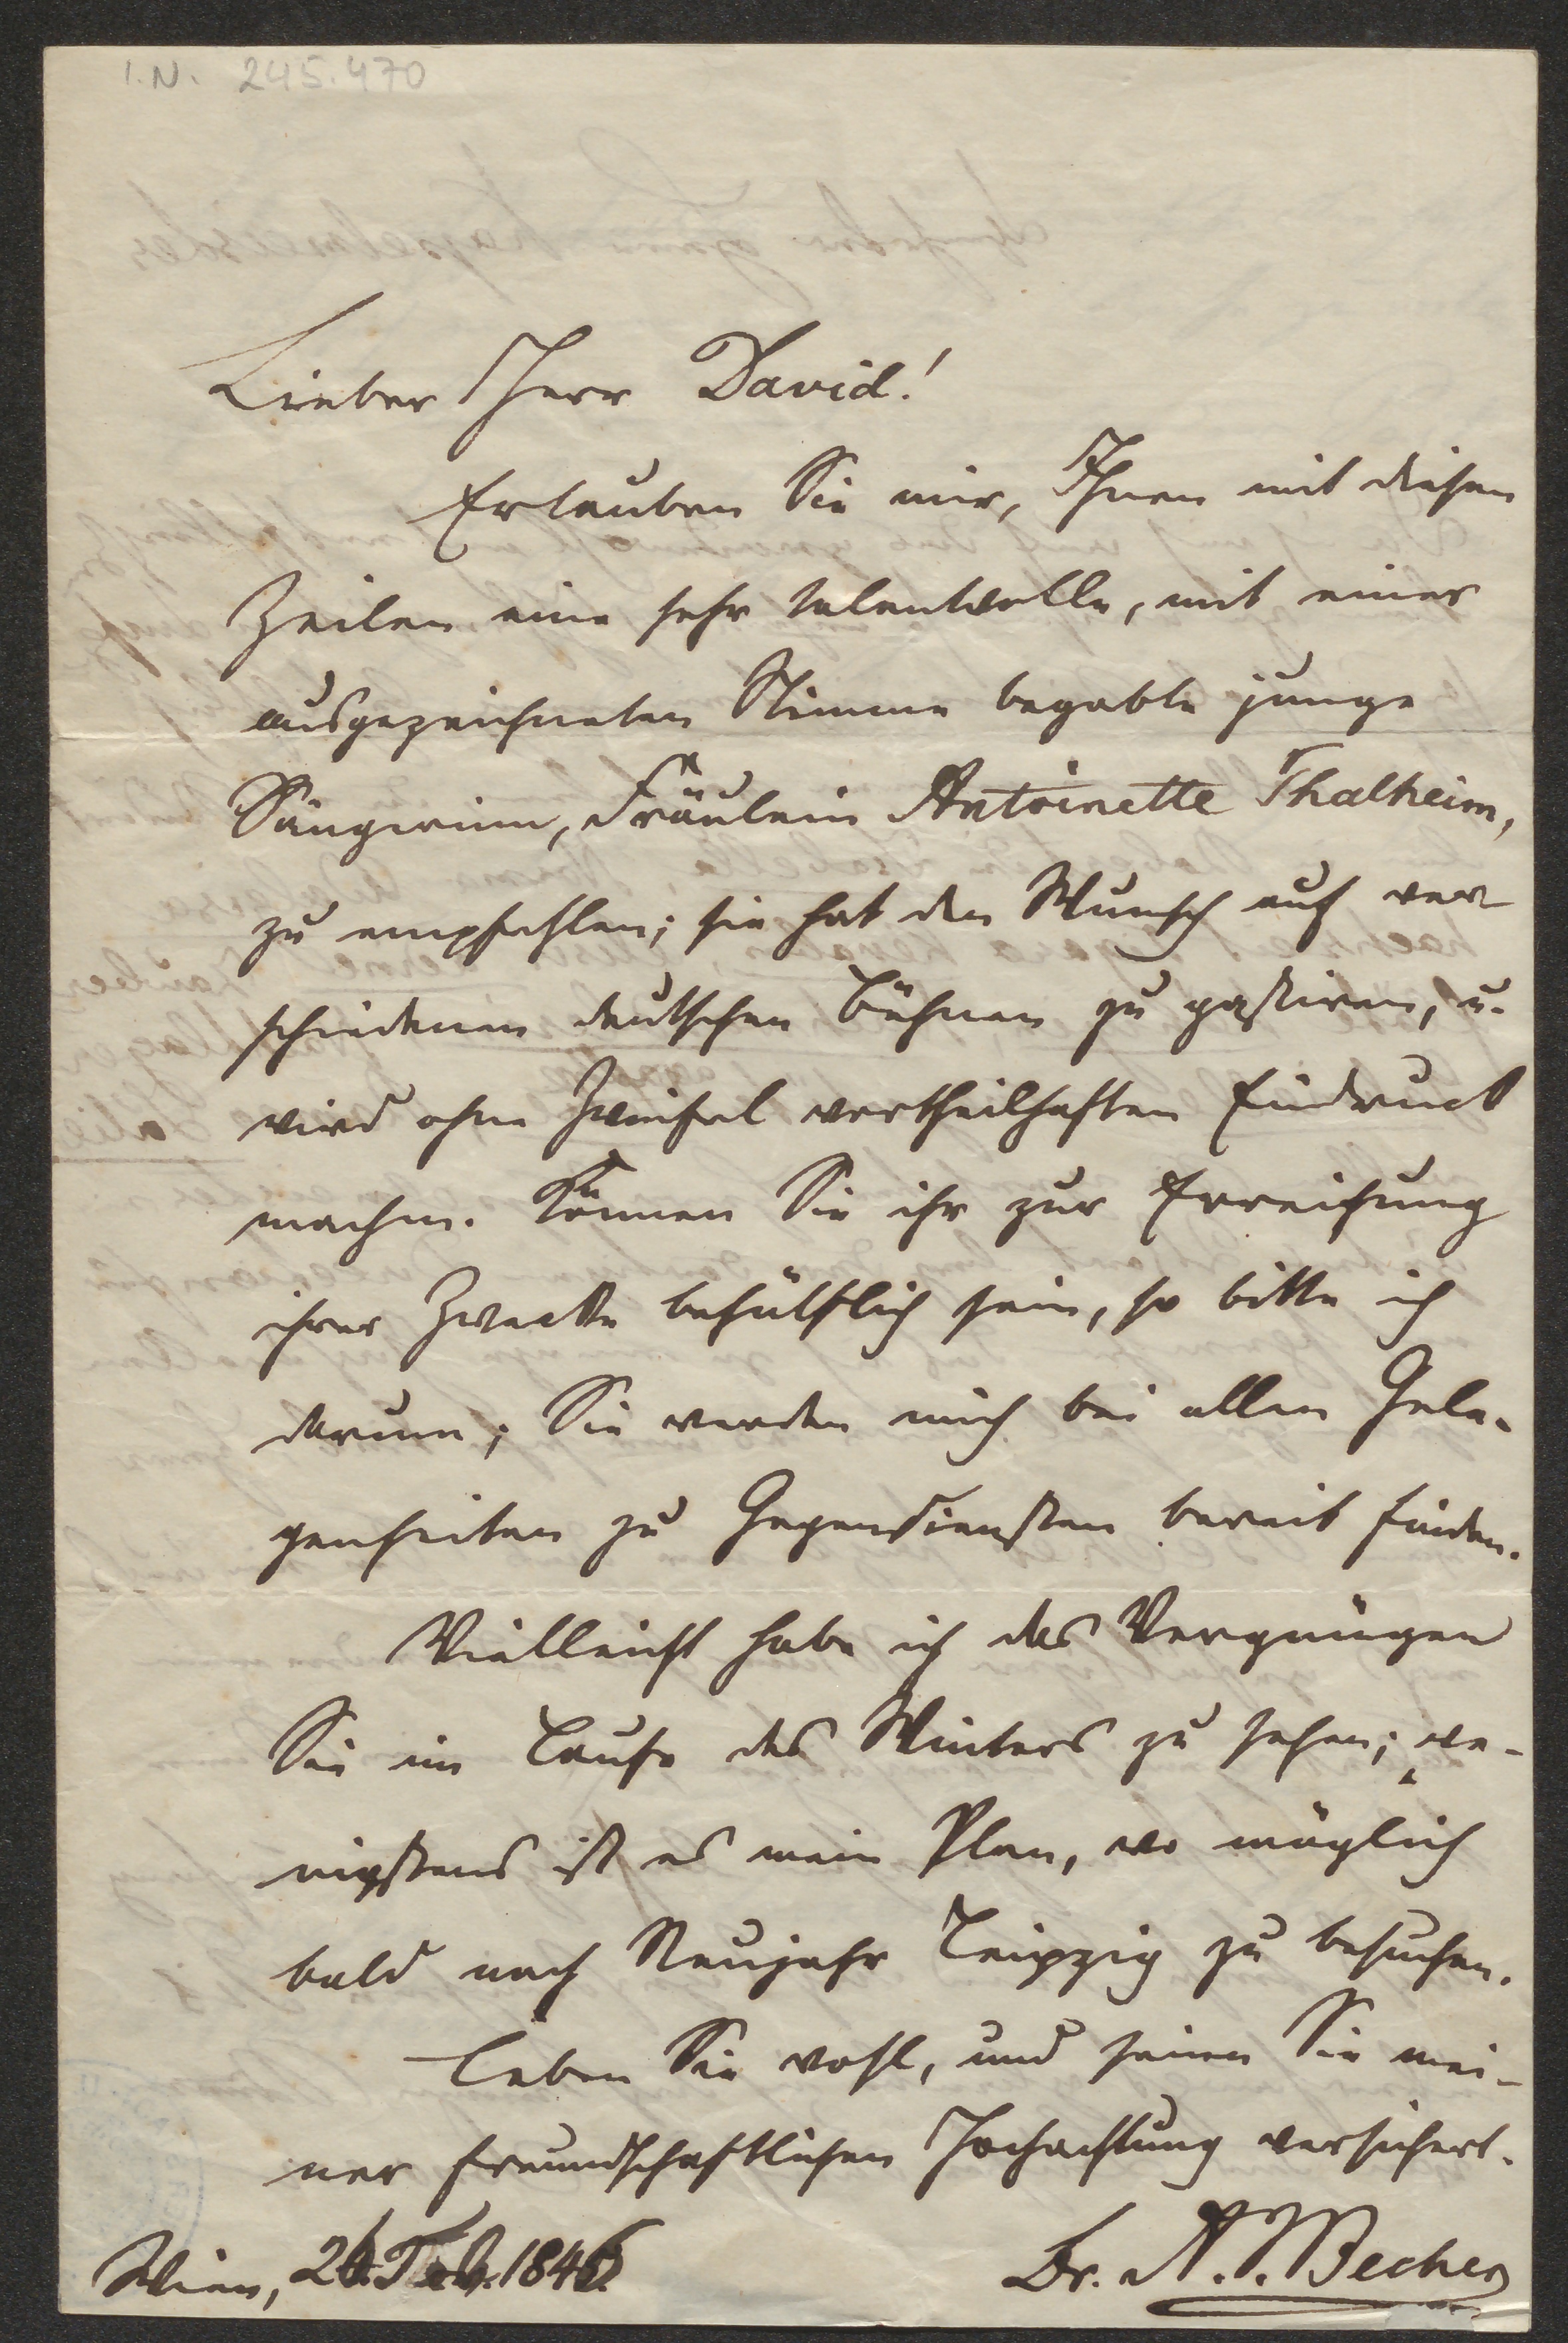 I.N. 245.470
Lieber Herr David!
Erlauben Sie mir, Ihnen mit diesen
Zeilen eine sehr talentvolle, mit einer
ausgezeichneten Stimme begabte junge
Sängerinn, Fräulein Antoinette Thalheim,
zu empfehlen; sie hat den Wunsch auf ver-
schiedenen deutschen Bühnen zu gastiren, u.
wird ohne Zweifel vortheilhaften Eindruck
machen. Können Sie ihr zur Erreichung
ihrer Zwecke behülflich sein, so bitte ich
darum; Sie werden mich bei allen Gele-
genheiten zu Gegendiensten bereit finden.
Vielleicht habe ich das Vergnügen
Sie im Laufe des Winters zu sehen; we-
nigstens ist es mein Plan, wo möglich
bald nach Neujahr Leipzig zu besuchen.
Leben Sie wohl, und seien Sie mei-
ner freundschaftlichen Hochachtung versichert.
Wien, 26. Feb. 1846
Dr. A. J. Becher